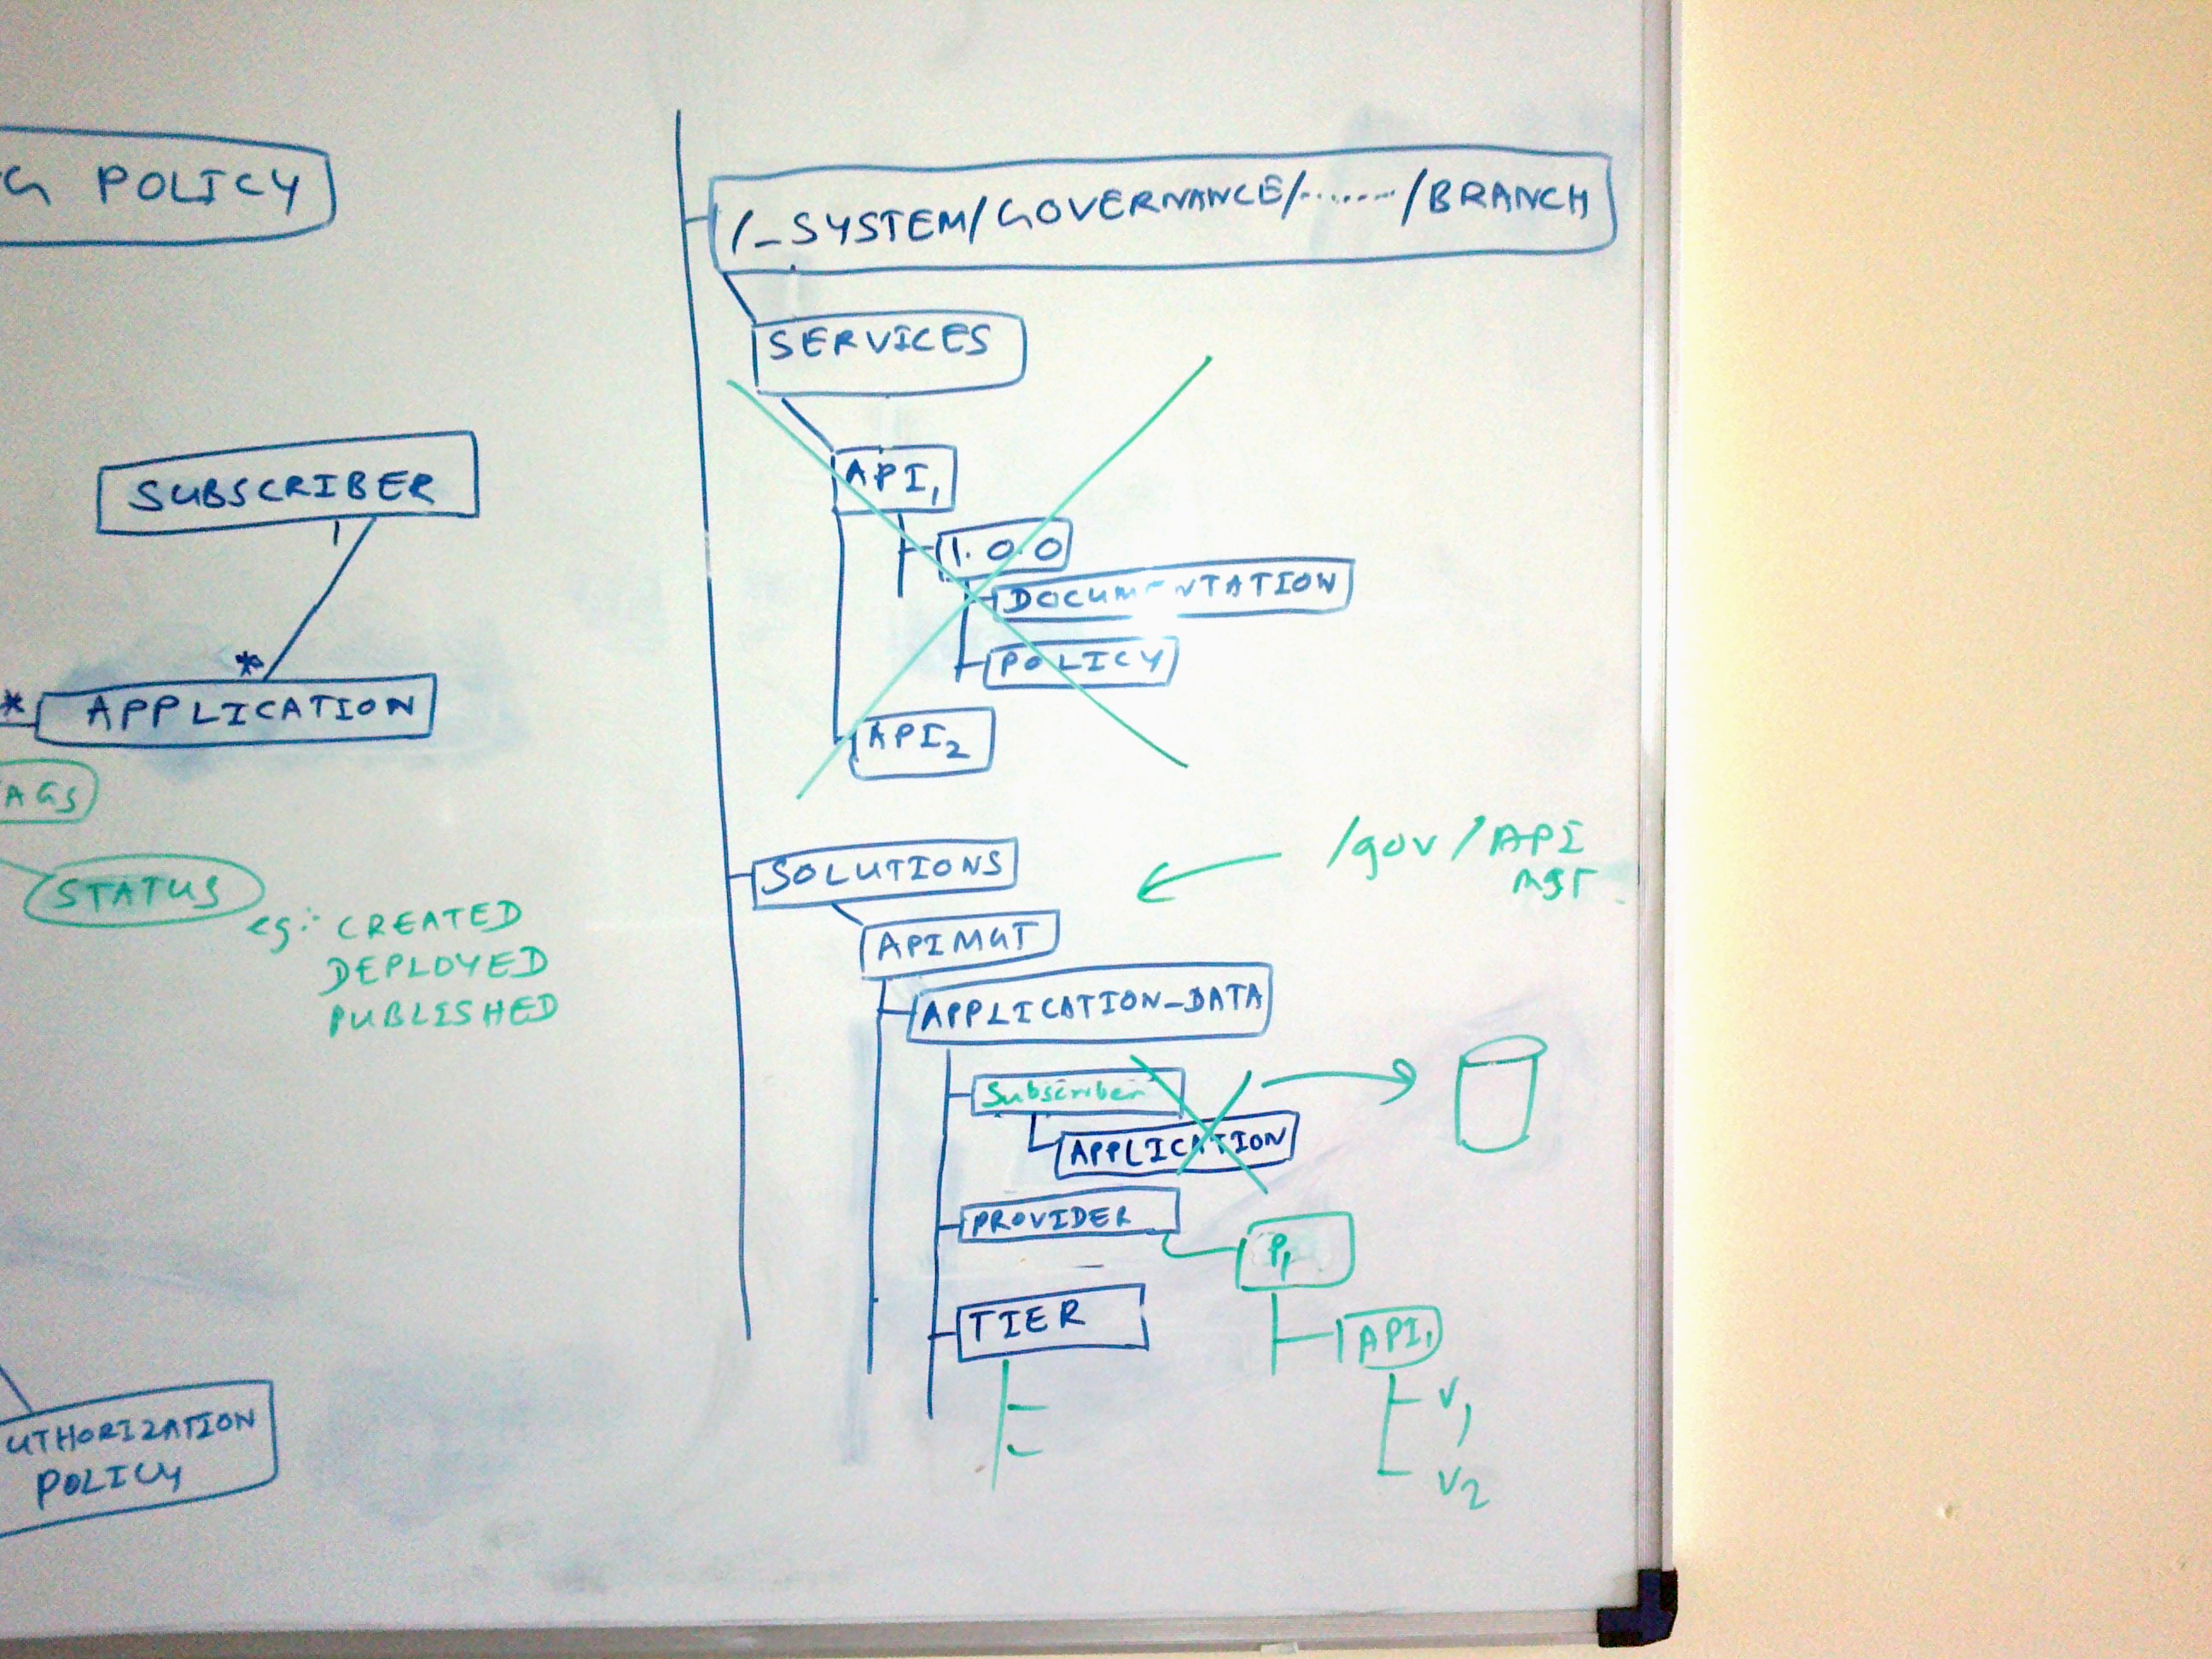 G POLICY
SUBSCRIBER
1
*
* APPLICATION
AGS
STATUS
eg:- CREATED
DEPLOYED
PUBLISHED
UTHORIZATION
POLICY
/_SYSTEM/GOVERNANCE/......./BRANCH
SERVICES
API1
1.0.0
DOCUMENTATION
POLICY
API2
SOLUTIONS
/gov/API
MGT
APIMGT
APPLICATION_DATA
Subscriber
APPLICATION
PROVIDER
P1
TIER
API1
V1
V2